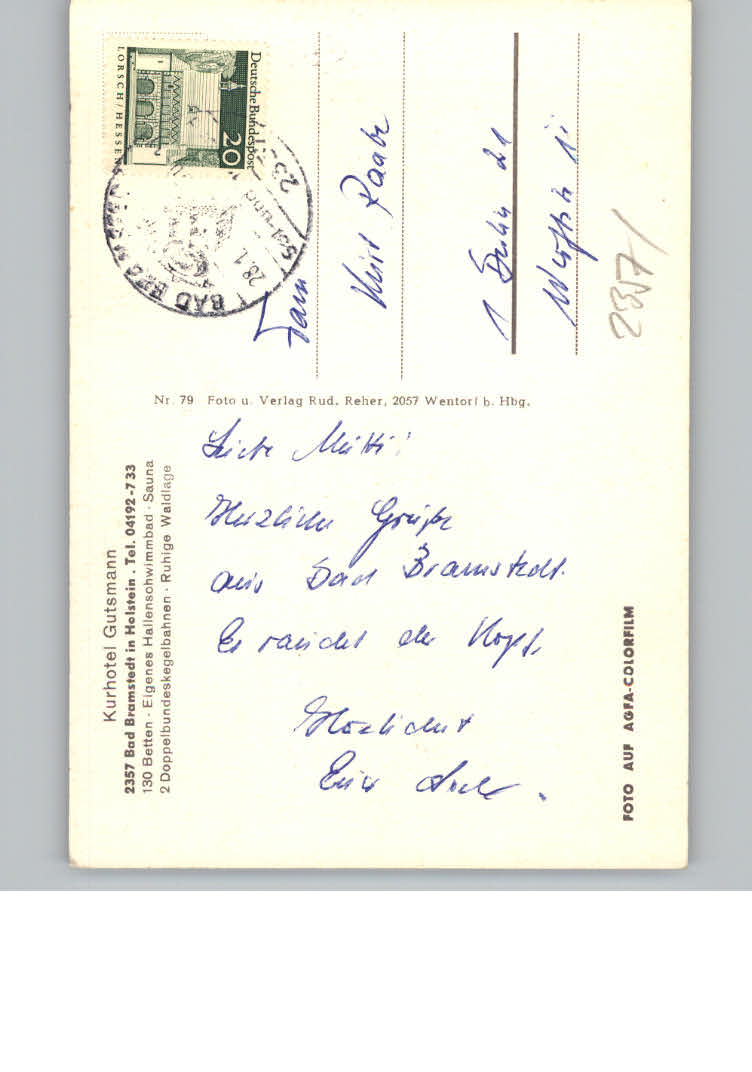 Kurhotel Gutsmann
2357 Bad Bramstedt in Holstein · Tel. 04192-733
130 Betten · Eigenes Hallenschwimmbad · Sauna
2 Doppelbundeskegelbahnen · Ruhige Waldlage
Nr. 79 Foto u. Verlag Rud. Reher, 2057 Wentorf b. Hbg.
Liebe Mutti!
Herzliche Grüße
aus Bad Bramstedt.
Es raucht der Kopf.
Herzlichst
Euer
Deutsche Bundespost
20
LORSCH/HESSEN
BAD
28.1.
Fam
Kurt Raabe
1 Berlin 21
2357/
FOTO AUF AGFA-COLORFILM